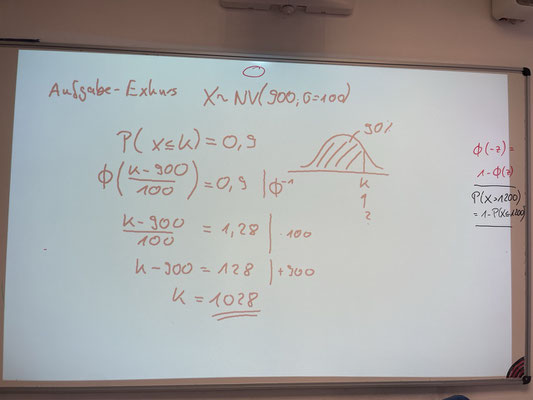 Aufgabe-Exkurs X~NV(900, σ=100)
P(X≤k)=0,9
90%
Φ(k-900/100)=0,9 |Φ⁻¹
k
?
k-900/100 = 1,28 |·100
k-900 = 128 |+900
k = 1028
Φ(-z) =
1-Φ(z)
P(X>1200)
=1-P(X≤1200)